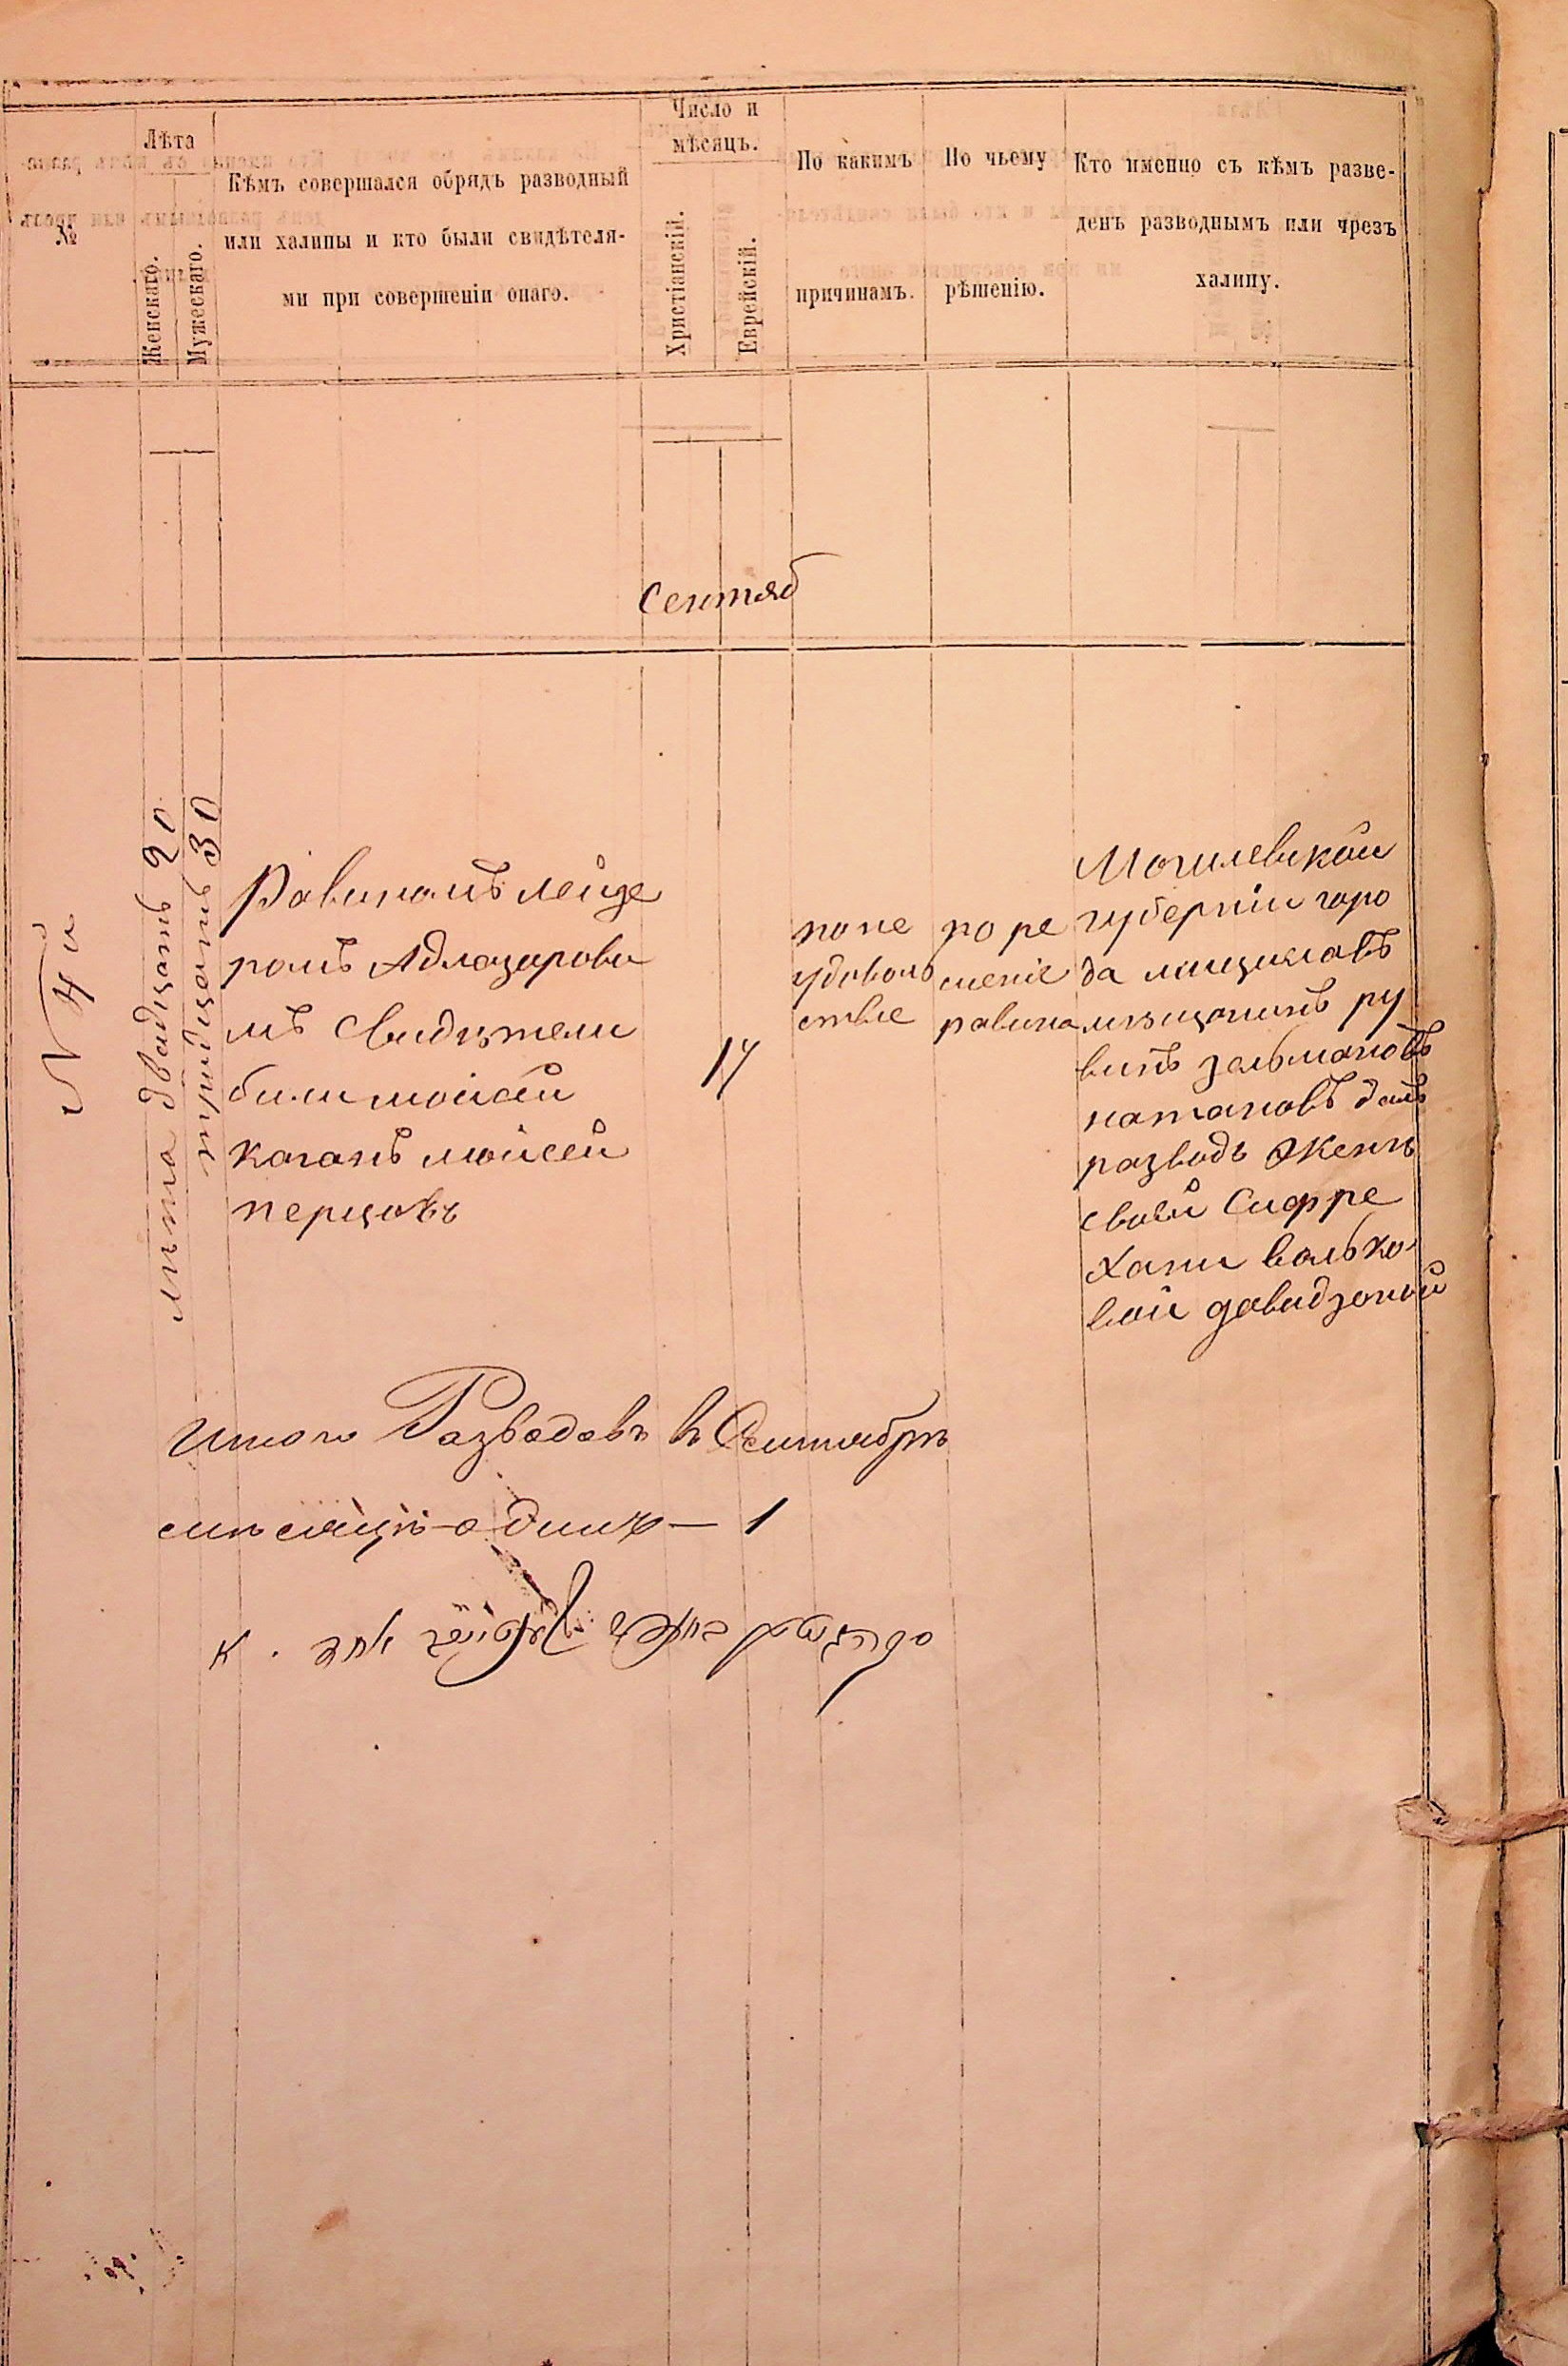 №
Лѣта
Женскаго.
Мужескаго.
Кѣмъ совершался обрядъ разводный
или халицы и кто были свидѣтеля-
ми при совершеніи онаго.
Число и
мѣсяцъ.
Христіанскій.
Еврейскій.
По какимъ
причинамъ.
По чьему
рѣшенію.
Кто именно съ кѣмъ разве-
денъ разводнымъ или чрезъ
халицу.
Сентяб
N 4й
лѣта двадцать 20
тридцать 30
Равиномъ лейзе
ромъ Адлазарови
мъ Свидѣтели
били мойсей
каганъ мойсей
перцовъ
17
по не
удоволь
ствие
по ре
шеніе
равина
Могилевской
губерніи горо
да мщиславъ
мѣщанинъ ру
винъ зельмановъ
натановъ далъ
разводъ Женѣ
своей Сифре
Хани валько-
вой давидзоной
Итого Разводовъ въ Сентябрѣ
мѣсяцѣ одинъ — 1